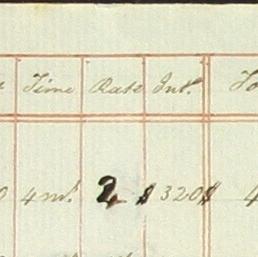 Time Rate Int.
4 m. 2 $ 320 $ 4